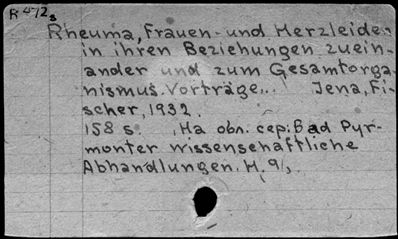 R 472s
Rheuma, Frauen- und Herzleiden
in ihren Beziehungen zuein-
ander und zum Gesamtorga-
nismus. Vorträge... Jena, Fi-
scher, 1932.
158 s. На обл. сер: Bad Pyr-
monter wissenschaftliche
Abhandlungen. H. 9/,